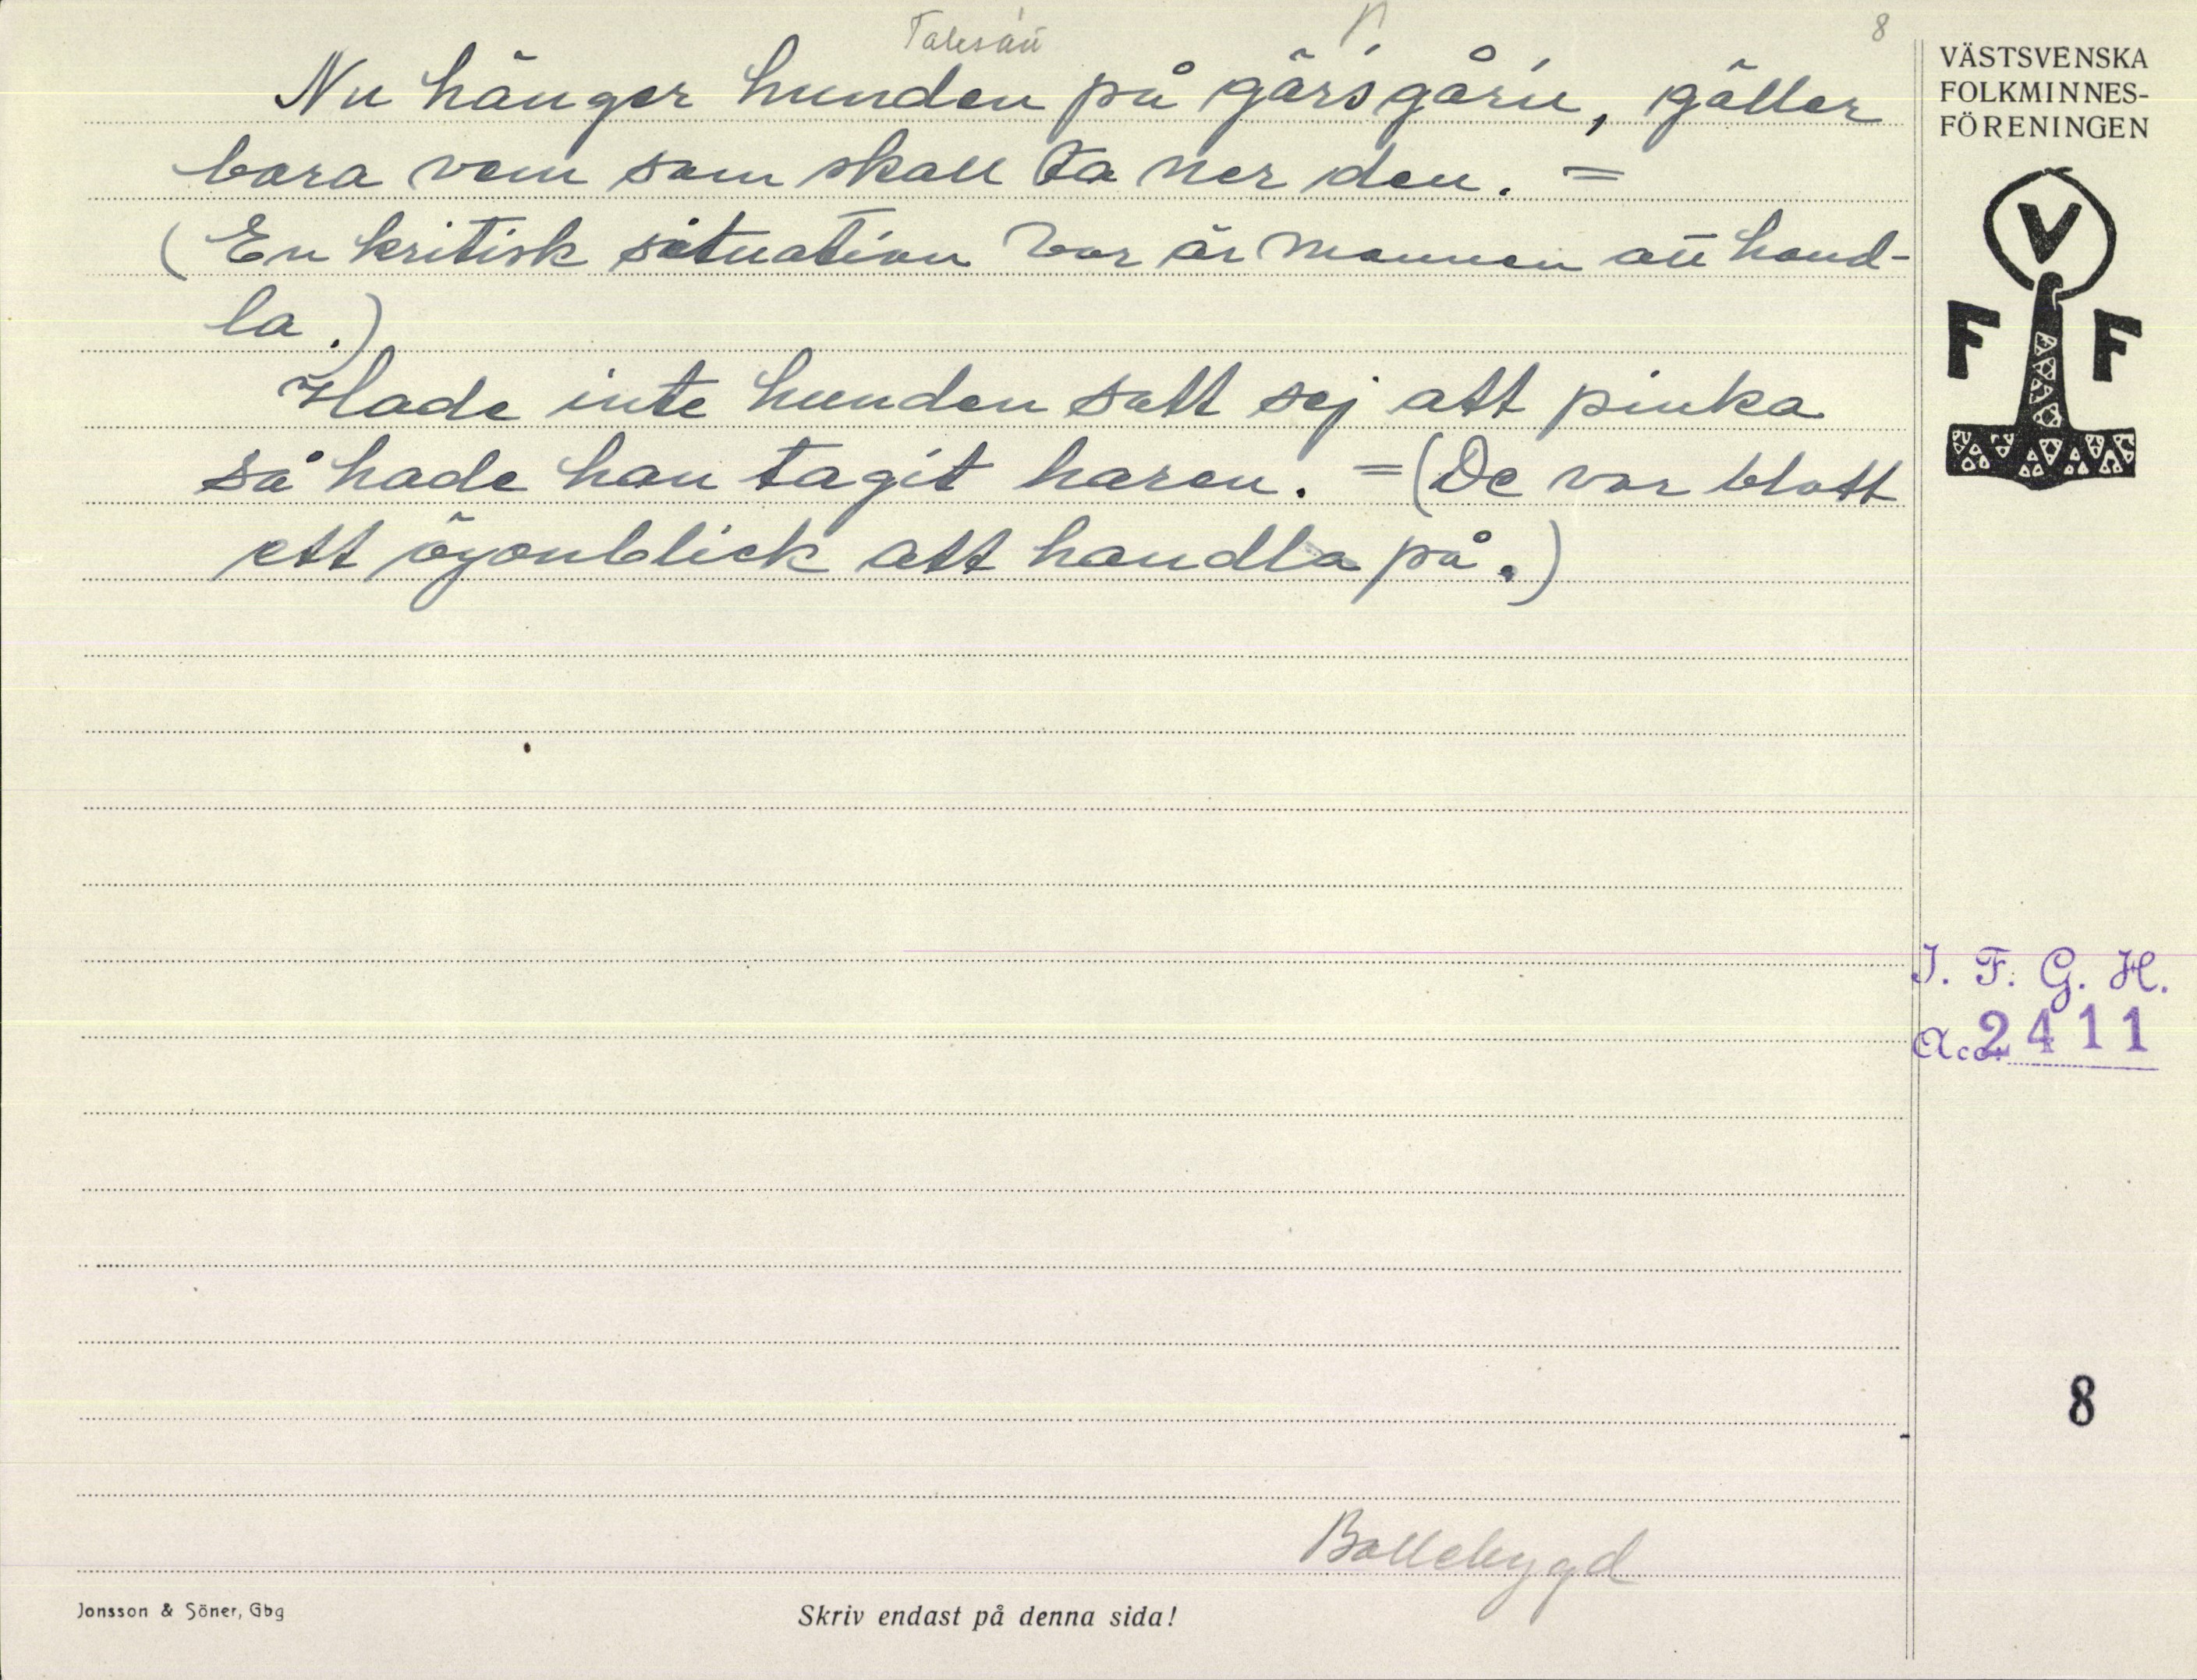 Talesätt
8
Nu hänger hunden på gärsgårn, gäller
bara vem som skall ta ner den. =
(En kritisk situation var är mannen att hand-
la.)
Hade inte hunden satt sej att pinka
så hade han tagit haren. =(De var blott
ett ögonblick att handla på.)
VÄSTSVENSKA
FOLKMINNES-
FÖRENINGEN
V
F F
I. F. G. H.
Acc. 2411
8
Bollebygd
Jonsson & Söner, Gbg
Skriv endast på denna sida!